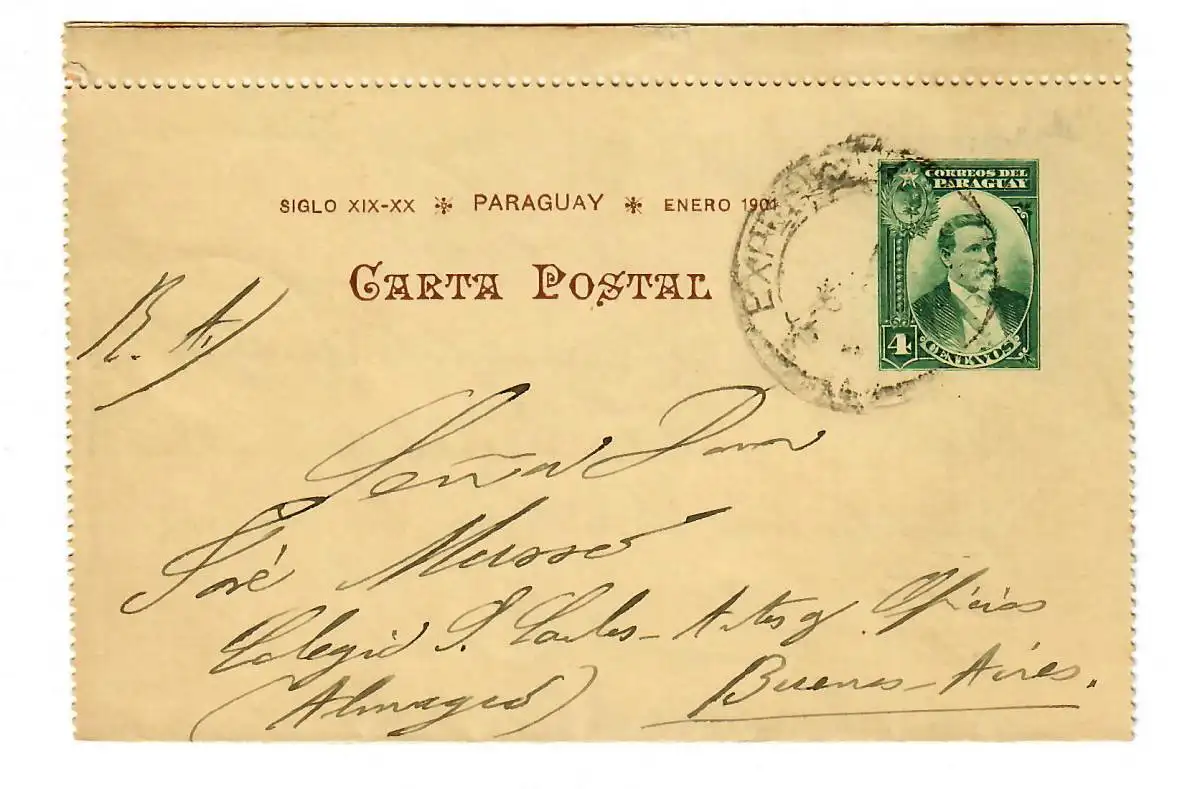 CORREOS DEL
PARAGUAY
SIGLO XIX-XX ✻ PARAGUAY ✻ ENERO 1901
CARTA POSTAL
4
CENTAVOS
R. A.)
Señor Don
José Musso
Colegio S. Carlos - Artes y Oficios
(Almagro) Buenos-Aires.